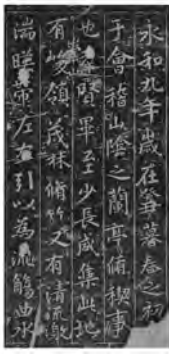 永和九年歲在癸丑暮春之初
于會稽山陰之蘭亭脩稧事
也群賢畢至少長咸集此地
有崇山峻領茂林脩竹又有清流激
湍暎帶左右引以為流觴曲水